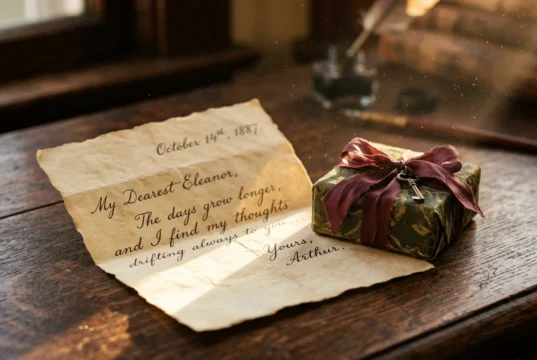 October 14th, 1887.
My Dearest Eleanor,
The days grow longer,
and I find my thoughts
drifting always to you.
Yours,
Arthur.